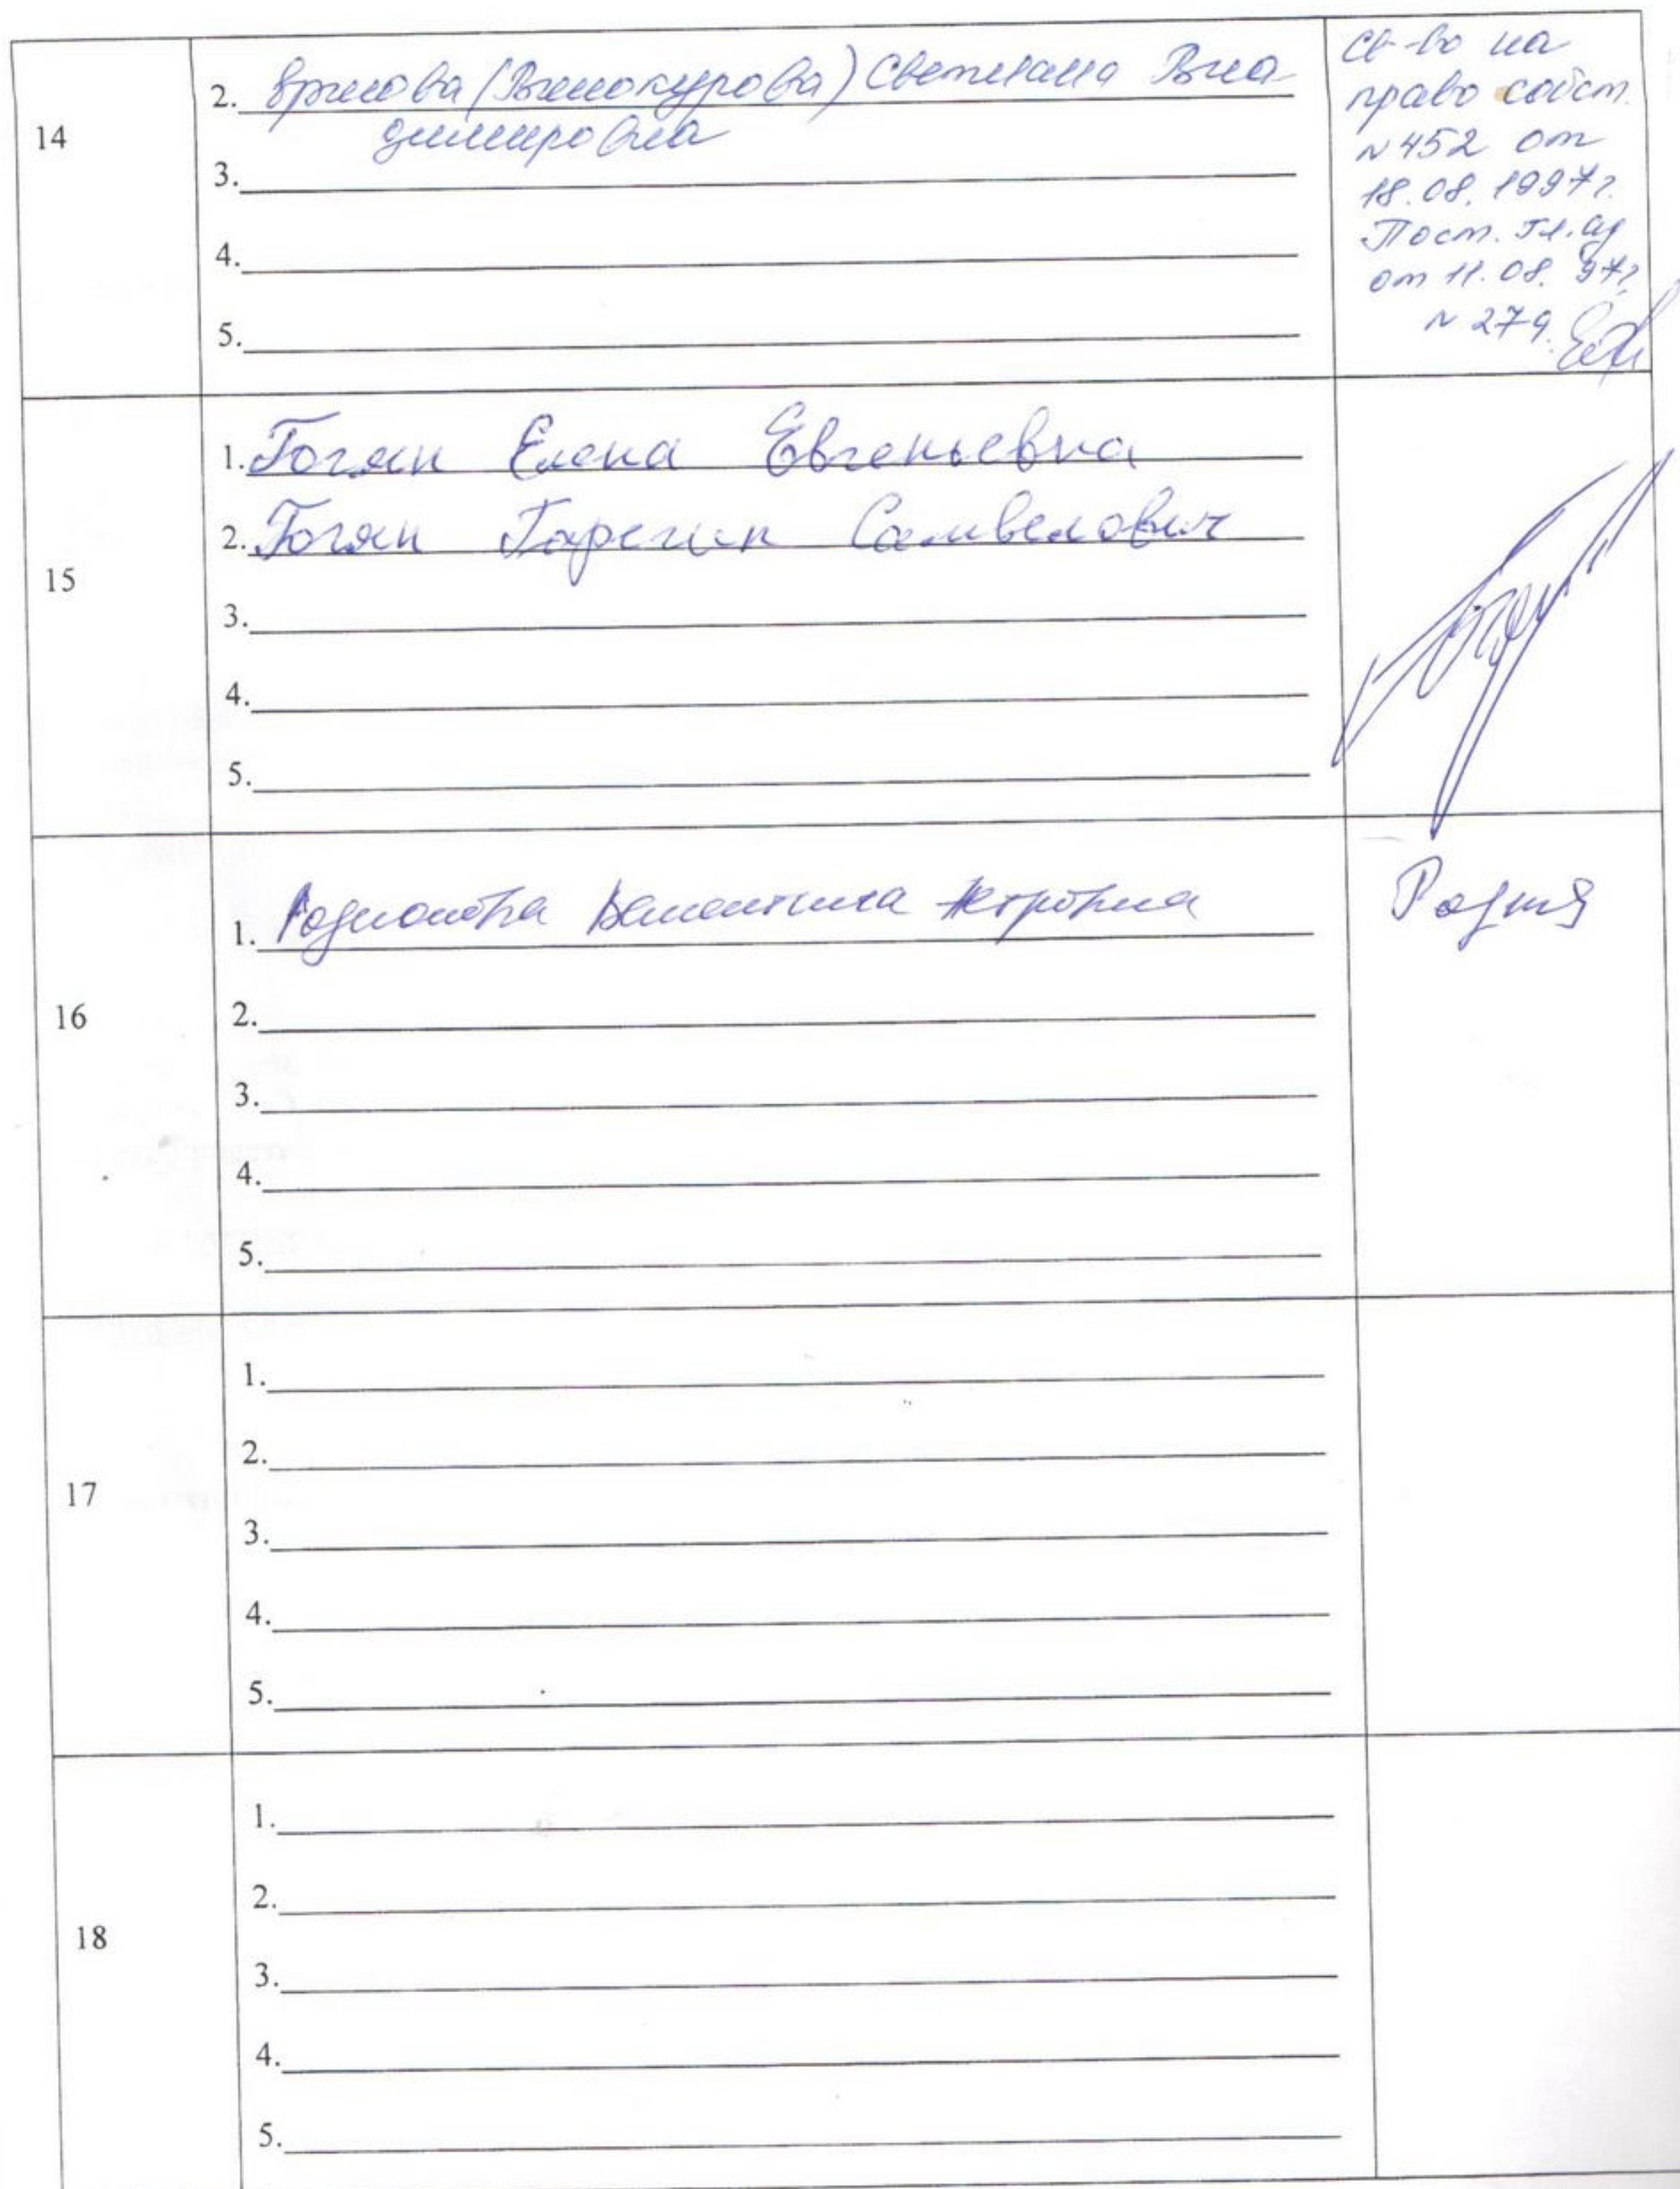 14
2. (Винокурова) Светлана Вла
димировна
3.
4.
5.
Св-во на
право собст.
N 452 от
18.08.1997г.
Пост. Гл. ад
от 11.08.97г.
N 279.
15
1. Гогян Елена Евгеньевна
2. Гогян Гарегин Самвелович
3.
4.
5.
16
1. Родионова Валентина Петровна
2.
3.
4.
5.
17
1.
2.
3.
4.
5.
18
1.
2.
3.
4.
5.